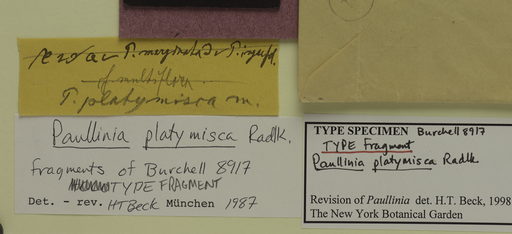 P. platymisca m.
Paullinia platymisca Radlk.
fragments of Burchell 8917
TYPE FRAGMENT
Det. - rev. HT Beck München 1987
TYPE SPECIMEN Burchell 8917
TYPE Fragment
Paullinia platymisca Radlk
Revision of Paullinia det. H.T. Beck, 1998
The New York Botanical Garden